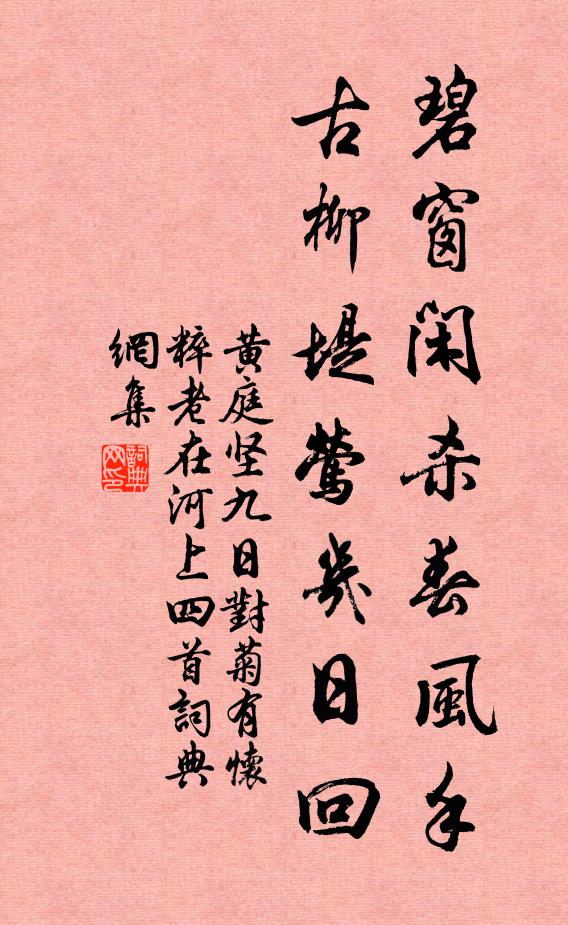 碧窗閑杀春風手
古柳堤鶯幾日回
黄庭坚九日對菊有懷
粹老在河上四首詞典
網集
詞典
网印